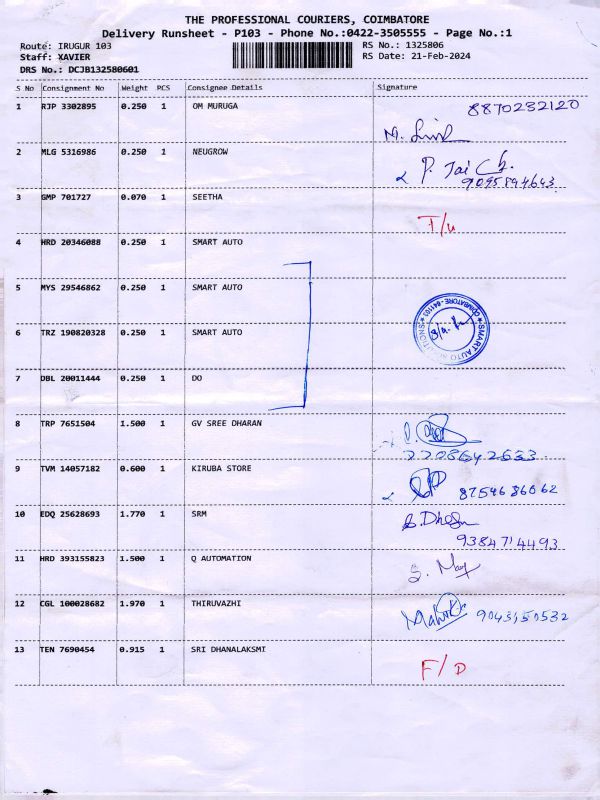 THE PROFESSIONAL COURIERS, COIMBATORE
Delivery Runsheet - P103 - Phone No.:0422-3505555 - Page No.:1
Route: IRUGUR 103 RS No.: 1325806
Staff: XAVIER RS Date: 21-Feb-2024
DRS No.: DCJB132580601
S No Consignment No Weight PCS Consignee Details Signature
1 RJP 3302895 0.250 1 OM MURUGA 8870232120
2 MLG 5316986 0.250 1 NEUGROW P. Jai
9095894643
3 GMP 701727 0.070 1 SEETHA T/U
4 HRD 20346088 0.250 1 SMART AUTO
5 MYS 29546862 0.250 1 SMART AUTO
6 TRZ 190820328 0.250 1 SMART AUTO SMART AUTO SOLUTIONS COIMBATORE - 641103
7 DBL 20011444 0.250 1 DO
8 TRP 7651504 1.500 1 GV SREE DHARAN
9 TVM 14057182 0.600 1 KIRUBA STORE 8754686062
10 EDQ 25628693 1.770 1 SRM
9384714493
11 HRD 393155823 1.500 1 Q AUTOMATION
12 CGL 100028682 1.970 1 THIRUVAZHI 9043150532
13 TEN 7690454 0.915 1 SRI DHANALAKSMI F/D